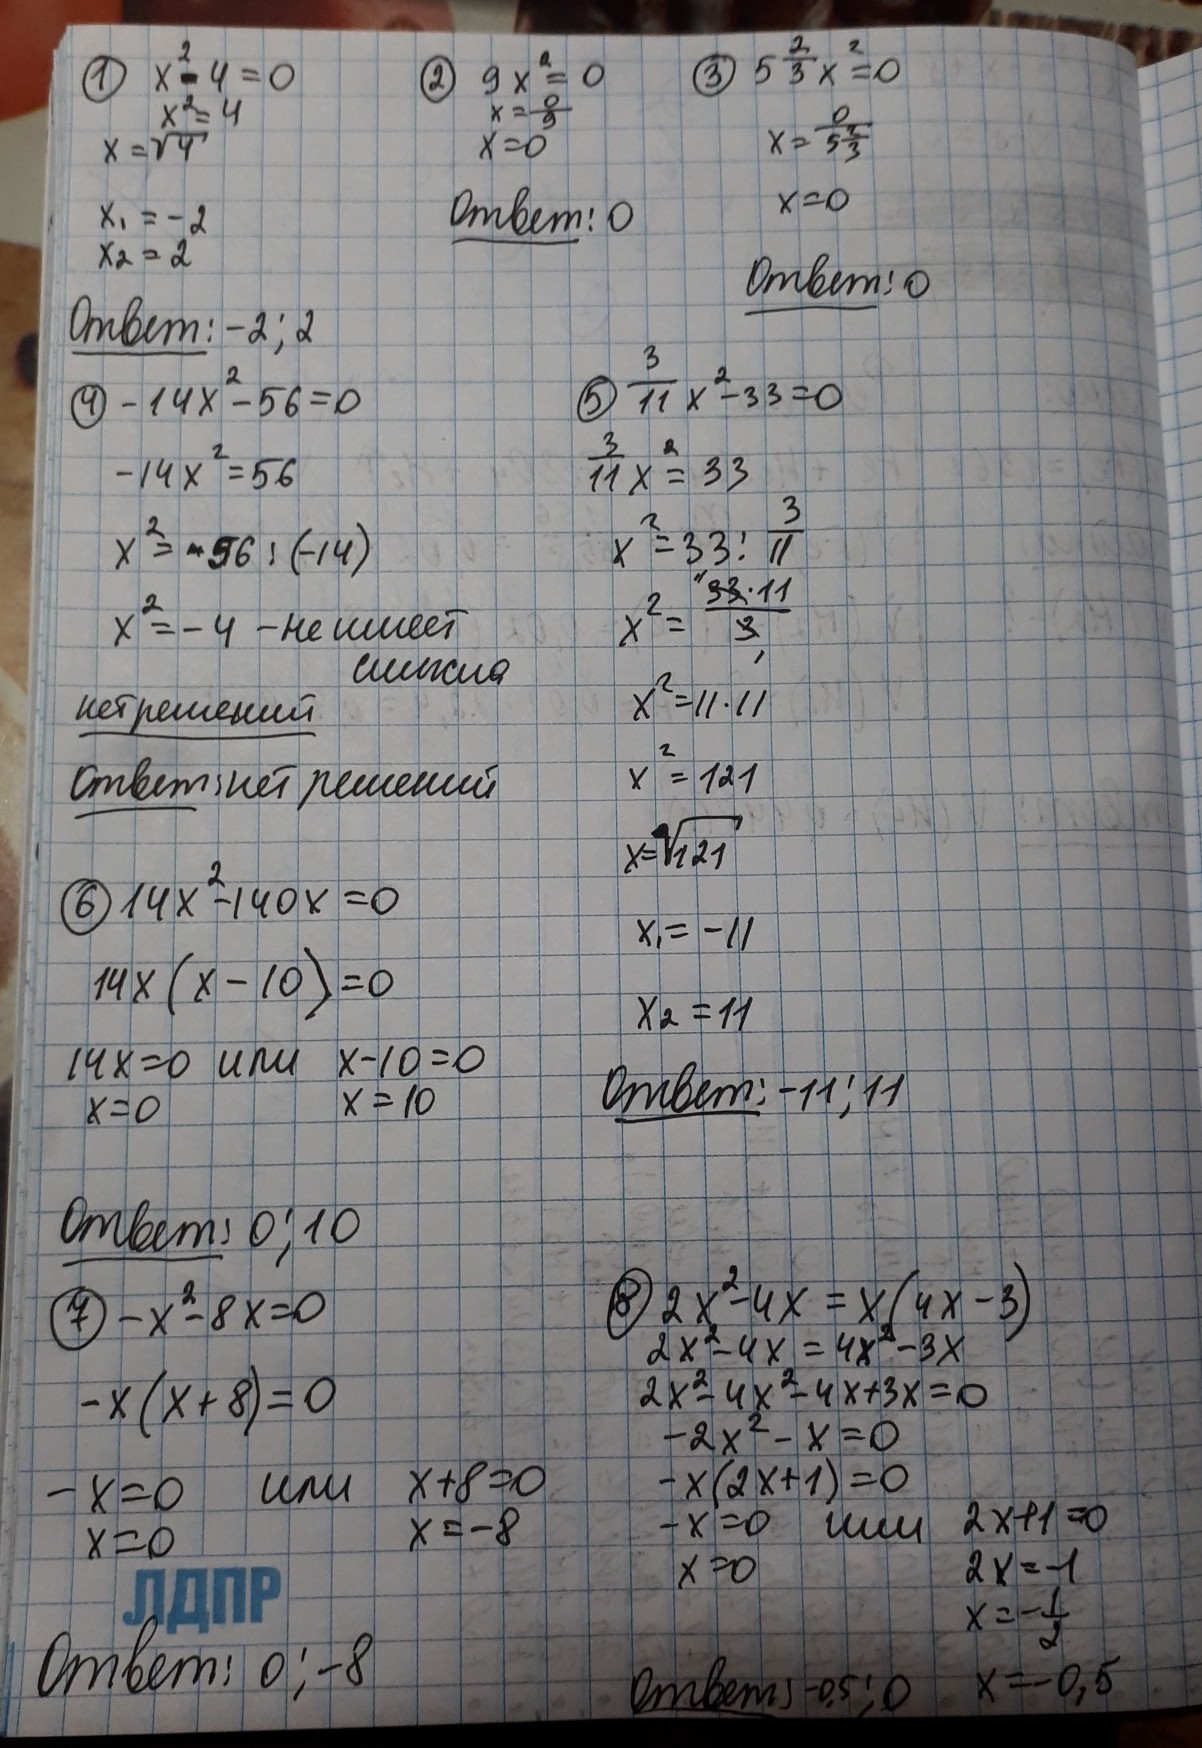 ① x² - 4 = 0
x² = 4
x = √4
x₁ = -2
x₂ = 2
Ответ: -2; 2
② 9x² = 0
x = 0/9
x = 0
Ответ: 0
③ 5 2/3 x² = 0
x = 0/(5 2/3)
x = 0
Ответ: 0
④ -14x² - 56 = 0
-14x² = 56
x² = 56 : (-14)
x² = -4 - не имеет
смысла
нет решений
Ответ: нет решений
⑤ 3/11 x² - 33 = 0
3/11 x² = 33
x² = 33 : 3/11
x² = 33·11/3
x² = 11·11
x² = 121
x = √121
x₁ = -11
x₂ = 11
Ответ: -11; 11
⑥ 14x² - 140x = 0
14x (x - 10) = 0
14x = 0 или x - 10 = 0
x = 0 x = 10
Ответ: 0; 10
⑦ -x² - 8x = 0
-x (x + 8) = 0
-x = 0 или x + 8 = 0
x = 0 x = -8
ЛДПР
Ответ: 0; -8
⑧ 2x² - 4x = x (4x - 3)
2x² - 4x = 4x² - 3x
2x² - 4x² - 4x + 3x = 0
-2x² - x = 0
-x (2x + 1) = 0
-x = 0 или 2x + 1 = 0
x = 0 2x = -1
x = -1/2
x = -0,5
Ответ: -0,5; 0